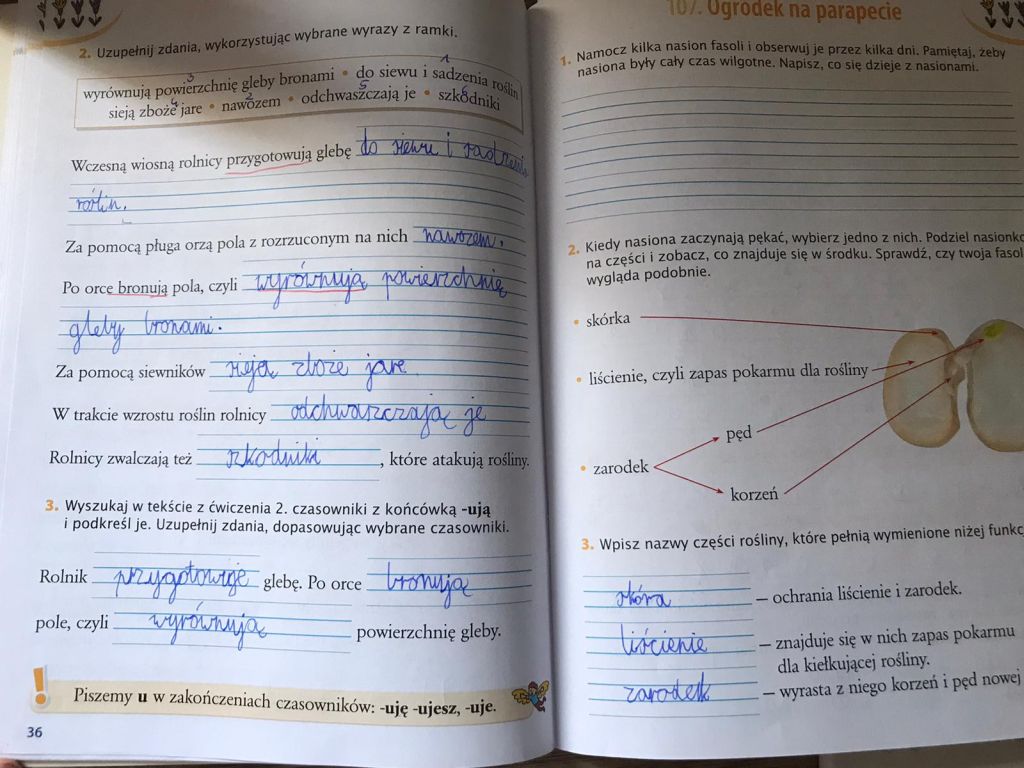 2. Uzupełnij zdania, wykorzystując wybrane wyrazy z ramki.
3 1
wyrównują powierzchnię gleby bronami • do siewu i sadzenia roślin
4 2 5 6
sieją zboże jare • nawozem • odchwaszczają je • szkodniki
Wczesną wiosną rolnicy przygotowują glebę do siewu i sadzenia
roślin.
Za pomocą pługa orzą pola z rozrzuconym na nich nawozem.
Po orce bronują pola, czyli wyrównują powierzchnię
gleby bronami.
Za pomocą siewników sieją zboże jare
W trakcie wzrostu roślin rolnicy odchwaszczają je
Rolnicy zwalczają też szkodniki, które atakują rośliny.
3. Wyszukaj w tekście z ćwiczenia 2. czasowniki z końcówką -ują
i podkreśl je. Uzupełnij zdania, dopasowując wybrane czasowniki.
Rolnik przygotowuje glebę. Po orce bronują
pole, czyli wyrównują powierzchnię gleby.
! Piszemy u w zakończeniach czasowników: -uję -ujesz, -uje.
36
107. Ogródek na parapecie
1. Namocz kilka nasion fasoli i obserwuj je przez kilka dni. Pamiętaj, żeby
nasiona były cały czas wilgotne. Napisz, co się dzieje z nasionami.
2. Kiedy nasiona zaczynają pękać, wybierz jedno z nich. Podziel nasionko
na części i zobacz, co znajduje się w środku. Sprawdź, czy twoja fasol
wygląda podobnie.
• skórka
• liścienie, czyli zapas pokarmu dla rośliny
pęd
• zarodek
korzeń
3. Wpisz nazwy części rośliny, które pełnią wymienione niżej funkc
skóra — ochrania liścienie i zarodek.
liścienie — znajduje się w nich zapas pokarmu
dla kiełkującej rośliny.
zarodek — wyrasta z niego korzeń i pęd nowej